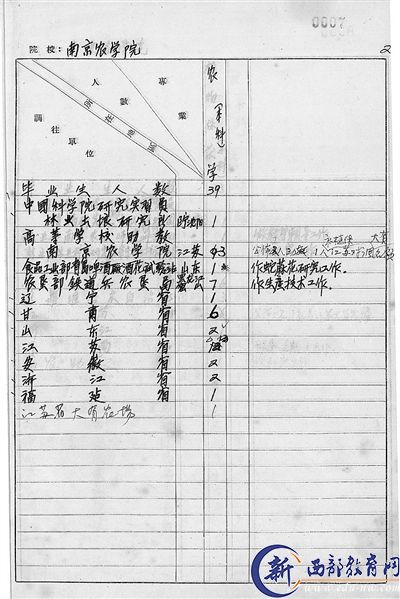 0007
院校：南京农学院
2
人数
專業
調往單位
农学
(本科)
毕业生人数 39
中國科学院研究实習員
林业土壤研究所 沈阳 1
高等学校助教
南京农学院 江苏 3
食品工业部青島啤酒廠酒花試驗站 山东 1 作蛇麻花研究工作。
农垦部铁道兵农垦局 黑龙江 7 作生产技术工作。
辽宁省 1
甘肃省 6
山东省 2
江苏省
安徽省 2
浙江省 2
福建省 1
江苏省大有农場 1
新 西部教育网